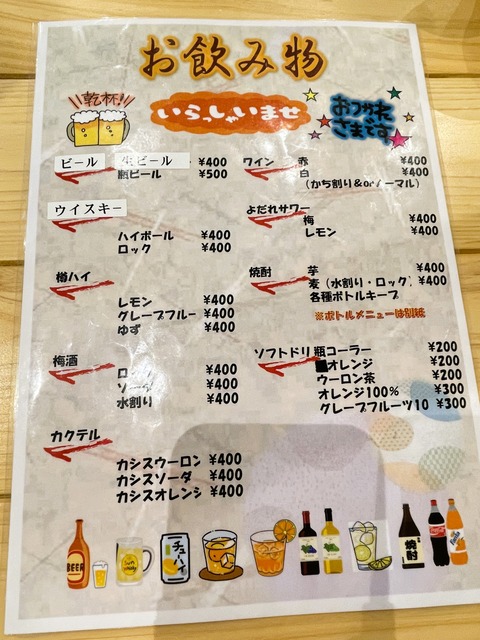 お飲み物
乾杯!
いらっしゃいませ
おつかれ
さまです
ビール
生ビール ¥400
瓶ビール ¥500
ウイスキー
ハイボール ¥400
ロック ¥400
樽ハイ
レモン ¥400
グレープフルー ¥400
ゆず ¥400
梅酒
ロック ¥400
ソーダ ¥400
水割り ¥400
カクテル
カシスウーロン ¥400
カシスソーダ ¥400
カシスオレンジ ¥400
ワイン
赤 ¥400
白 ¥400
(かち割り&orノーマル)
よだれサワー
梅 ¥400
レモン ¥400
焼酎
芋 ¥400
麦(水割り・ロック) ¥400
各種ボトルキープ
※ボトルメニューは別紙
ソフトドリ
瓶コーラー ¥200
オレンジ ¥200
ウーロン茶 ¥200
オレンジ100% ¥300
グレープフルーツ10 ¥300
BEER
チューハイ
焼酎